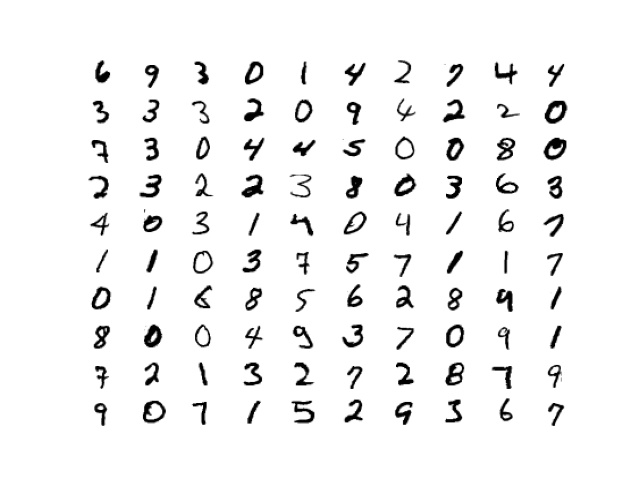 6 9 3 0 1 4 2 7 4 4
3 3 3 2 0 9 4 2 2 0
7 3 0 4 4 5 0 0 8 0
2 3 2 2 3 8 0 3 6 3
4 0 3 1 4 0 4 1 6 7
1 1 0 3 7 5 7 1 1 7
0 1 6 8 5 6 2 8 9 1
8 0 0 4 9 3 7 0 9 1
7 2 1 3 2 7 2 8 7 9
9 0 7 1 5 2 9 3 6 7